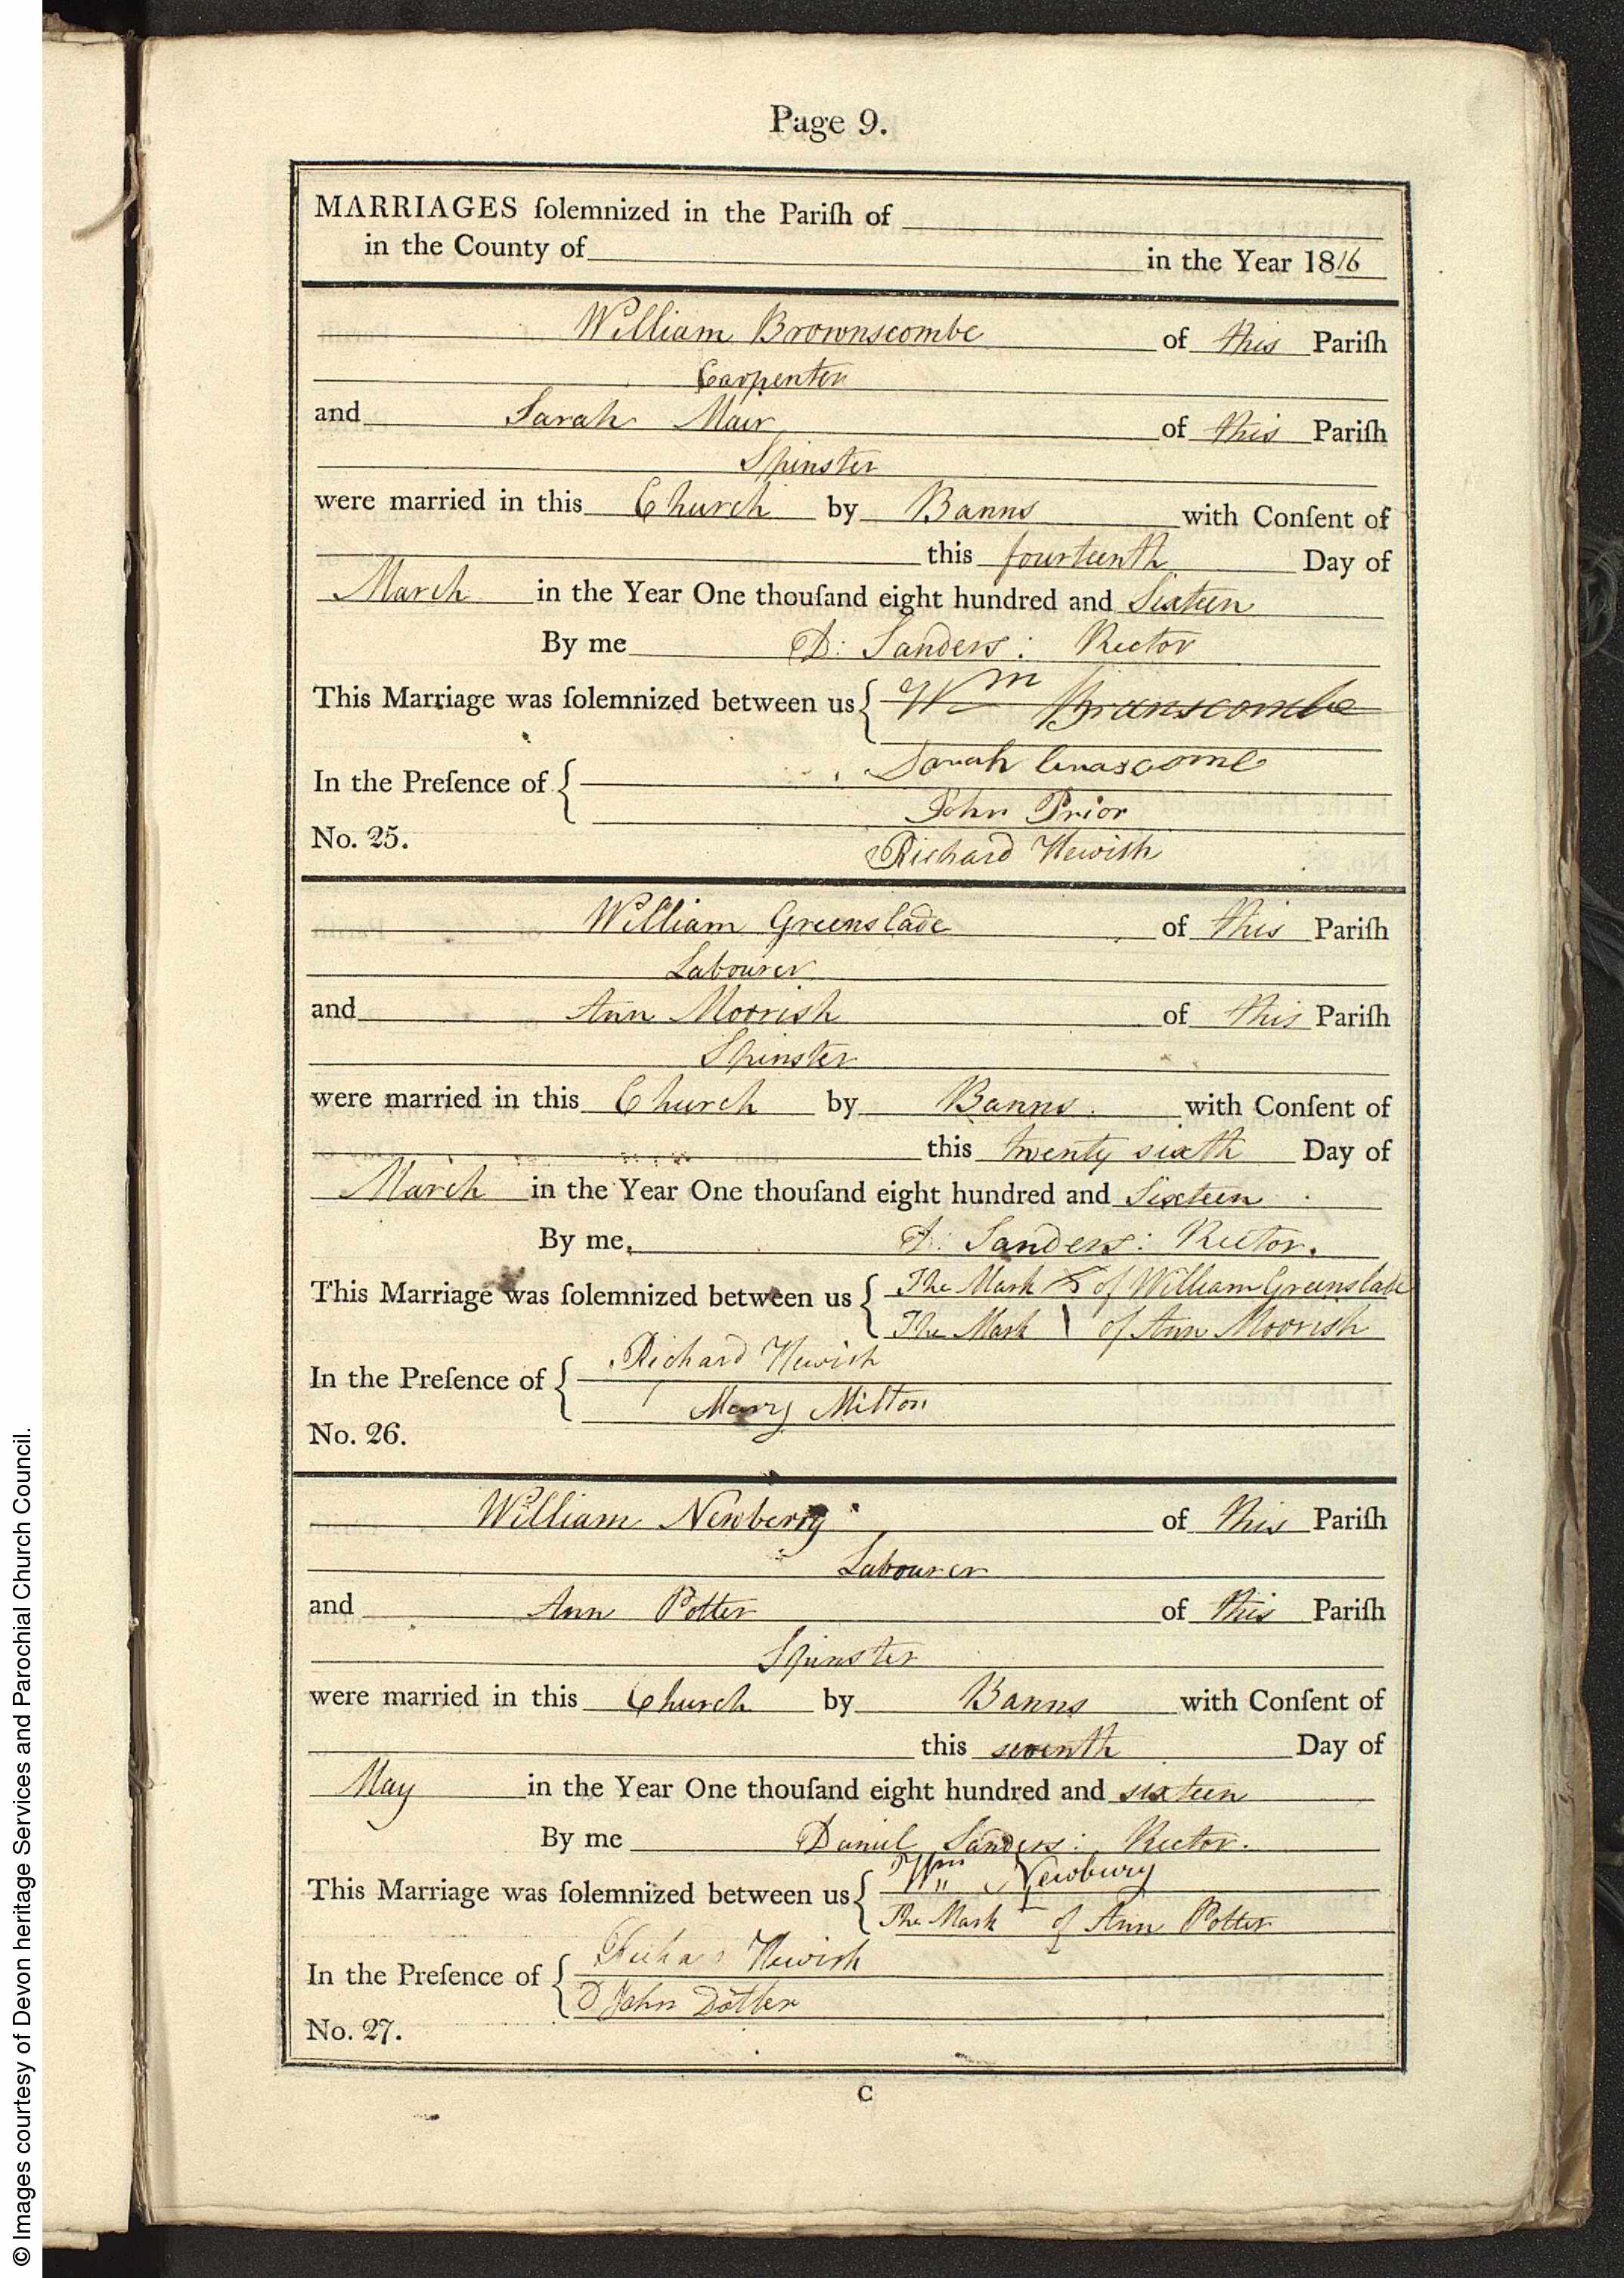 Page 9.
MARRIAGES ſolemnized in the Pariſh of
in the County of in the Year 1816
William Brownscombe of this Pariſh
Carpenter
and Sarah Mair of this Pariſh
Spinster
were married in this Church by Banns with Conſent of
this fourteenth Day of
March in the Year One thouſand eight hundred and Sixteen
By me D: Sanders: Rector
This Marriage was ſolemnized between us { Wm Branscombe
Sarah
In the Preſence of {
John Prior
No. 25.
Richard Hewish
William Greenslade of this Pariſh
Labourer
and Ann Moorish of this Pariſh
Spinster
were married in this Church by Banns with Conſent of
this twenty sixth Day of
March in the Year One thouſand eight hundred and Sixteen
By me, D: Sanders: Rector.
This Marriage was ſolemnized between us { The Mark of William Greenslade
The Mark of Ann Moorish
Richard Hewish
In the Preſence of {
Mary Milton
No. 26.
William Newberry of this Pariſh
Labourer
and Ann Potter of this Pariſh
Spinster
were married in this Church by Banns with Conſent of
this seventh Day of
May in the Year One thouſand eight hundred and sixteen
By me Daniel Sanders: Rector.
This Marriage was ſolemnized between us { Wm Newbury
The Mark of Ann Potter
Richard Hewish
In the Preſence of {
John Dotter
No. 27.
C
© Images courtesy of Devon heritage Services and Parochial Church Council.